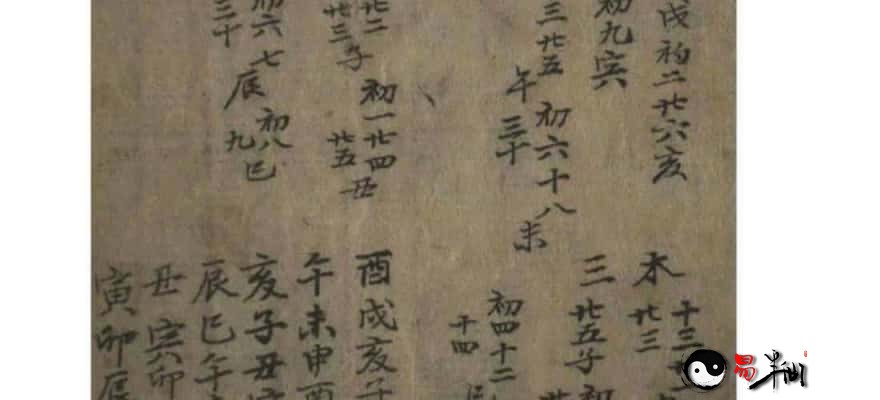 戌初二廿六亥
初九寅
三廿五
午
三十
初六十八
未
廿二
廿三
子
初一廿四
廿五
丑
初六七
三十
辰
初八
九
巳
木
十三
廿三
三
廿五子初
初四十二
十四
酉戌亥子
午未申酉
亥子丑寅
辰巳午
丑寅卯
寅卯辰
易半仙